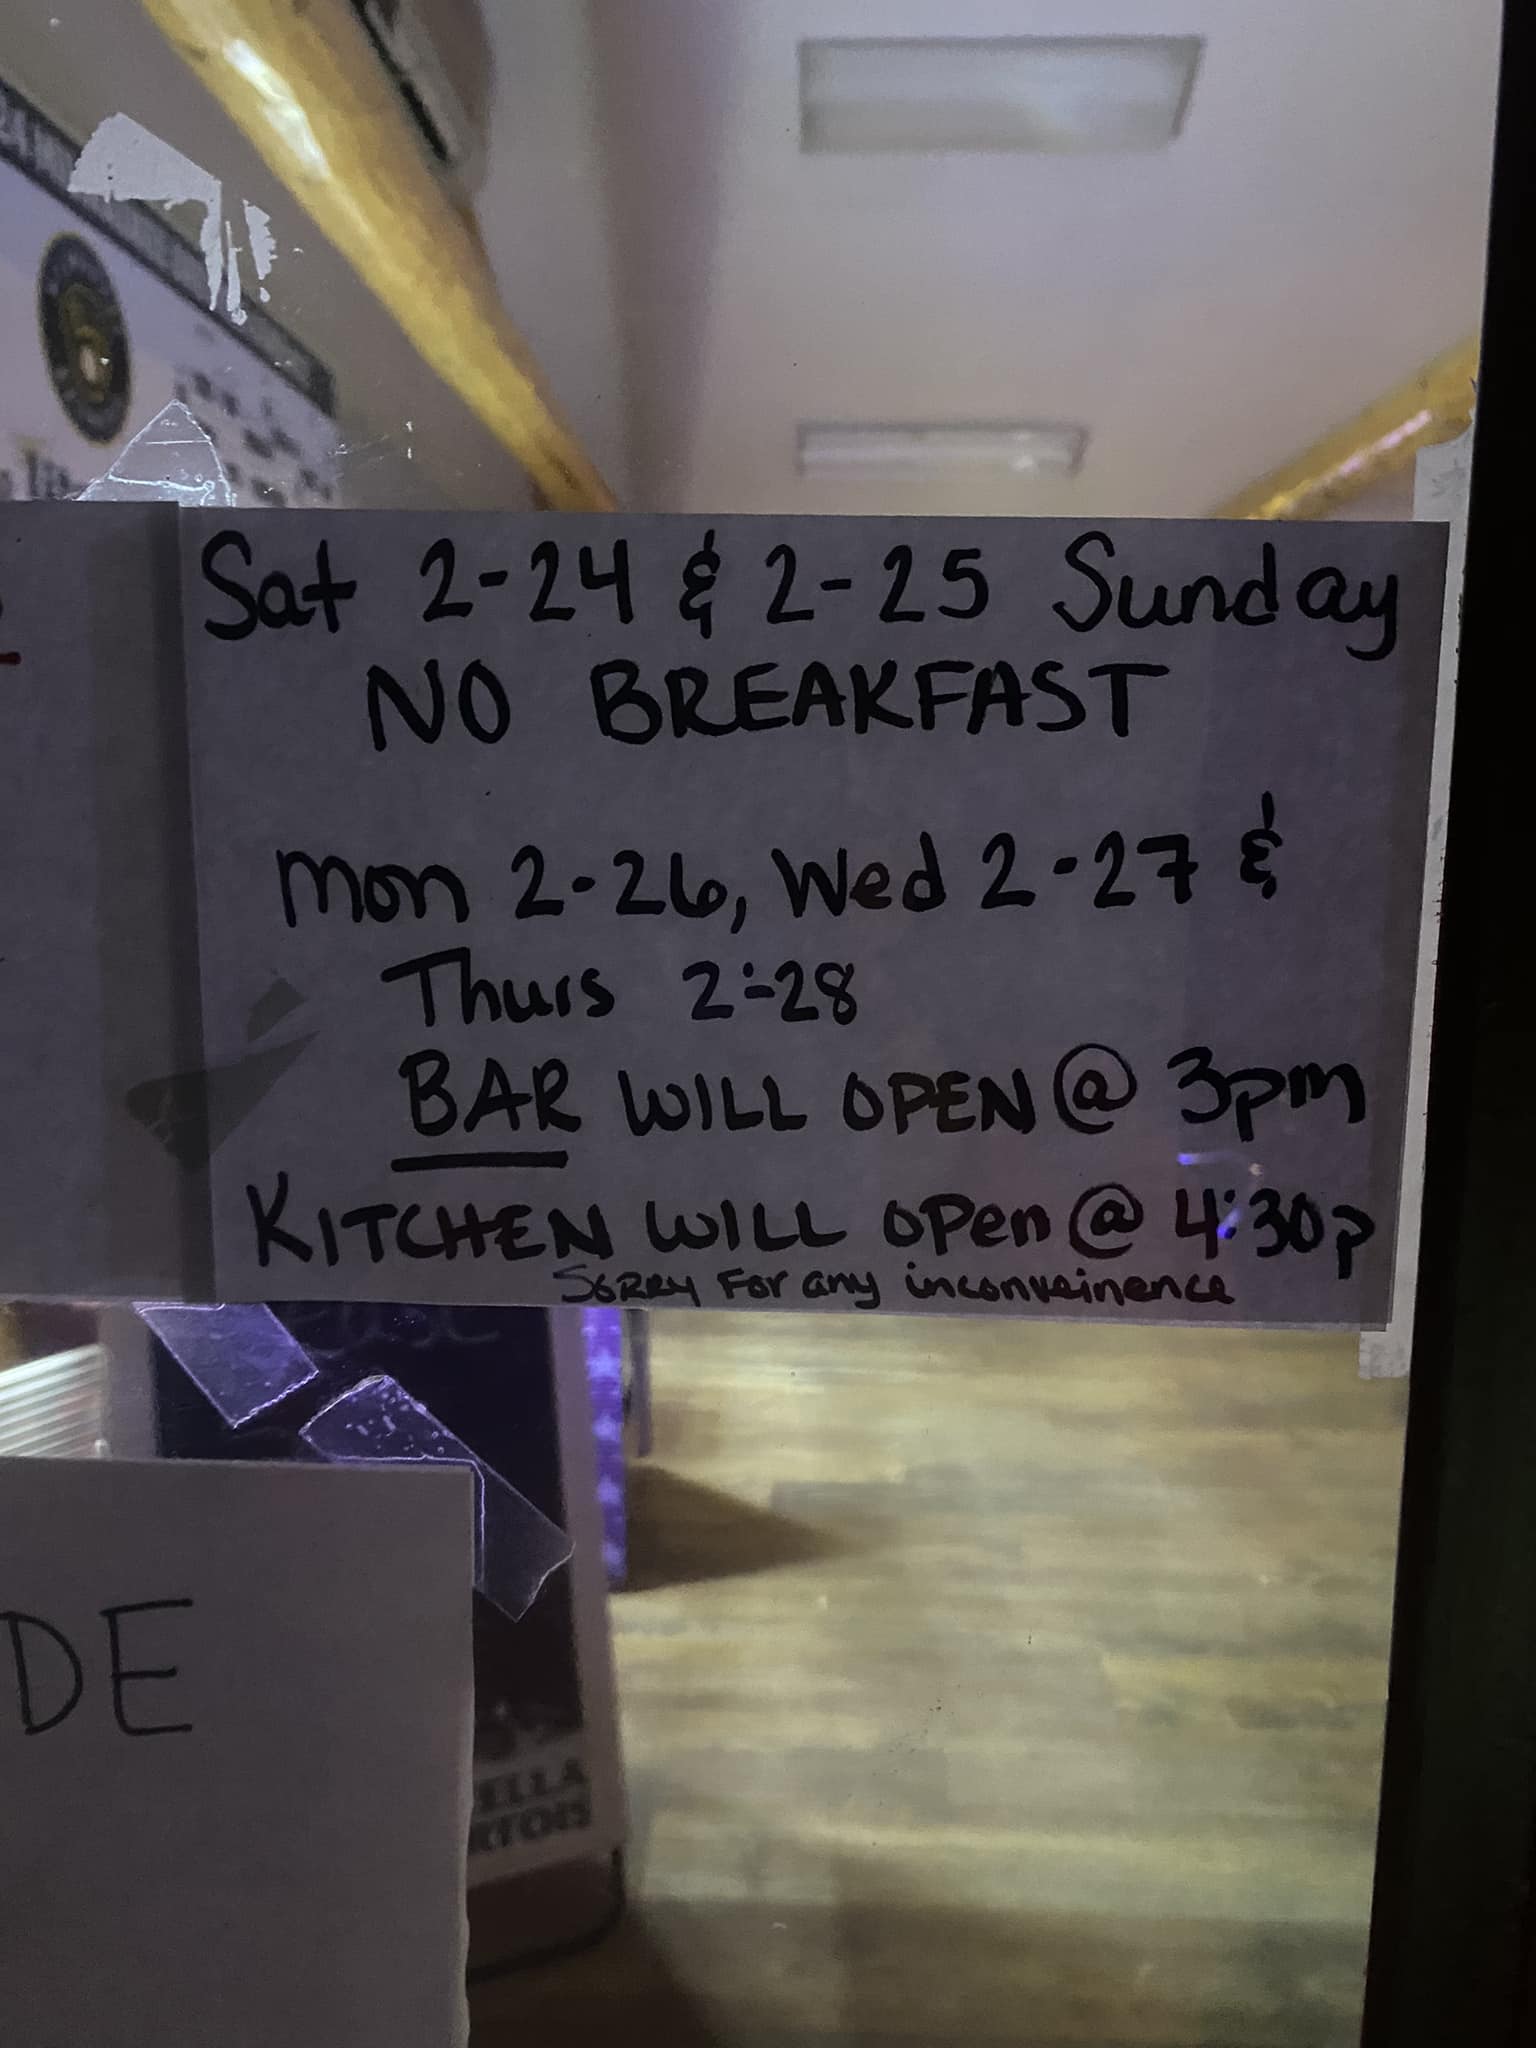 Sat 2-24 & 2-25 Sunday
NO BREAKFAST
Mon 2-26, Wed 2-27 &
Thurs 2-28
BAR WILL OPEN @ 3pm
KITCHEN WILL OPen @ 4:30p
SORRY For any inconveinence
DE
ELLA
RTOIS